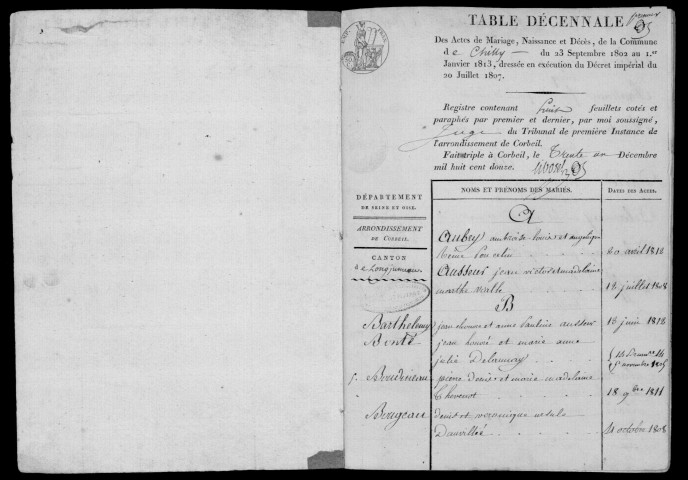 premier
TABLE DÉCENNALE
Des Actes de Mariage, Naissance et Décès, de la Commune
de Chilly du 23 Septembre 1802 au 1.er
Janvier 1813, dressée en exécution du Décret impérial du
20 Juillet 1807.
Registre contenant huit feuillets cotés et
paraphés par premier et dernier, par moi soussigné,
Juge du Tribunal de première Instance de
l'arrondissement de Corbeil.
Fait triple à Corbeil, le Trente un Décembre
mil huit cent douze.
DÉPARTEMENT
DE SEINE ET OISE.
ARRONDISSEMENT
DE CORBEIL.
CANTON
de Longjumeau
NOMS ET PRÉNOMS DES MARIÉS. DATES DES ACTES.
A
Aubry ambroise louis et angelique
20 avril 1812
Ausseur jean victor et madelaine
marthe 12 juillet 1808
B
Barthelemy jean honoré et anne Pauline ausseur 18 juin 1812
Bonté jean honoré et marie anne
julie Delaunay
Boudineau pierre denis et marie madelaine
thevenot 18 9bre 1811
Bougeau denis et veronique ursule
Dauvillié 4 octobre 1808